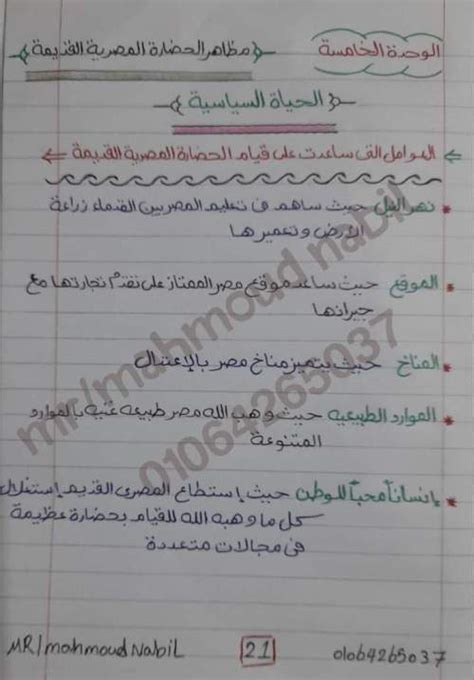 الوحدة الخامسة
مظاهر الحضارة المصرية القديمة
الحياة السياسية
العوامل التى ساعدت على قيام الحضارة المصرية القديمة
* نهر النيل حيث ساهم فى تعليم المصريين القدماء زراعة
الارض وتعميرها
* الموقع حيث ساعد موقع مصر الممتاز على تقدم تجارتها مع
جيرانها
* المناخ حيث يتميز مناخ مصر بالإعتدال
* الموارد الطبيعيه حيث وهب الله مصر طبيعه غنيه بالموارد
المتنوعة
* إنساناً محباً للوطن حيث إستطاع المصرى القديم إستغلال
كل ما وهبه الله للقيام بحضارة عظيمة
فى مجالات متعددة
mr/mahmoud nabil
01064265037
MR/mahmoud Nabil
21
01064265037